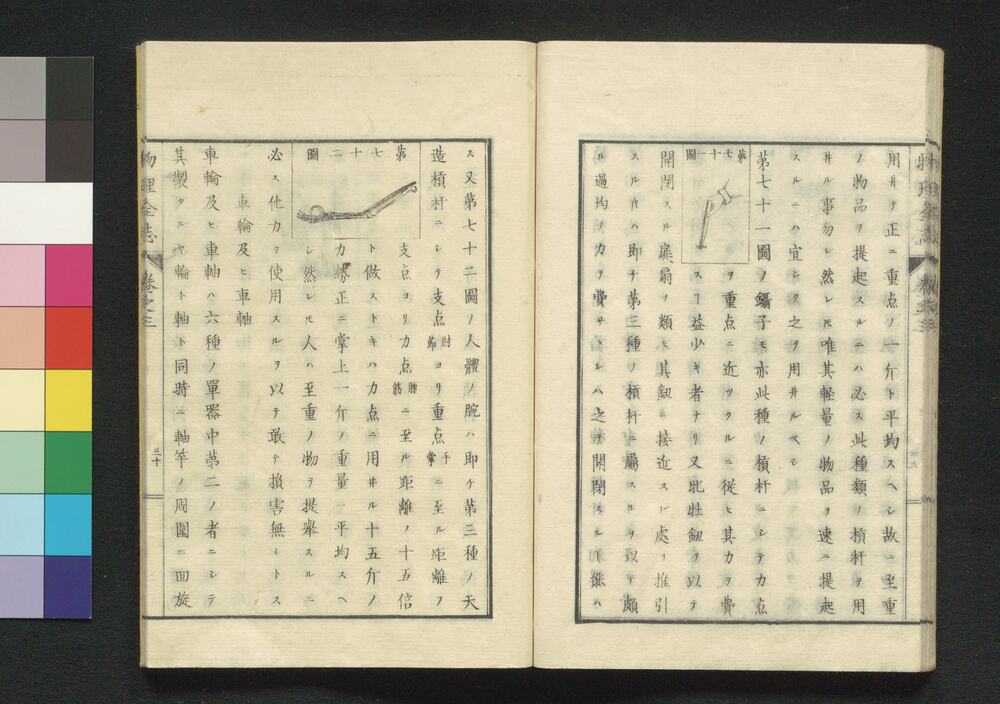 用井テ正ニ重点ノ一介ト平均スヘシ故ニ至重
ノ物品ヲ提起スルニハ必ス此種類ノ槓杆ヲ用
井ル事勿レ然レ𪜈唯其軽量ノ物品ヲ速ニ提起
スルニハ宜シク之ヲ用井ルベシ
第七十一圖ノ鑷子モ亦此種ノ槓杆ニシテ力点
第七十一圖
ヲ重点ニ近ツクルニ従ヒ其力ヲ費
スヿ益少キ者ナリ又牝牡釼ヲ以テ
開閉スル扉扇ノ類ハ其釼ニ接近スル處ヲ推引
スル𪜈ハ即チ第三種ノ槓杆ニ屬スルヲ以テ頗
ル過均ノ力ヲ費サヽレハ之ヲ開閉スルヿ能ハ
ス又第七十二圖ノ人體ノ腕ハ即チ第三種ノ天
造槓杆ニシテ支点肘節ヨリ重点手掌ニ至ル距離ヲ
第七十二圖
支点ヨリ力点膊筋ニ至ル距離ノ十五倍
ト做ストキハ力点ニ用井ル十五介ノ
力勢正ニ掌上一介ノ重量ト平均スヘ
シ然レ𪜈人ハ至重ノ物ヲ提擧スルニ
必ス他力ヲ使用スルヲ以テ敢テ損害無シトス
車輪及ヒ車軸
車輪及ヒ車軸ハ六種ノ單器中第二ノ者ニシテ
其製タルヤ輪ト軸ト同時ニ軸竿ノ周圍ニ回旋
物理全志 卷之三
三十